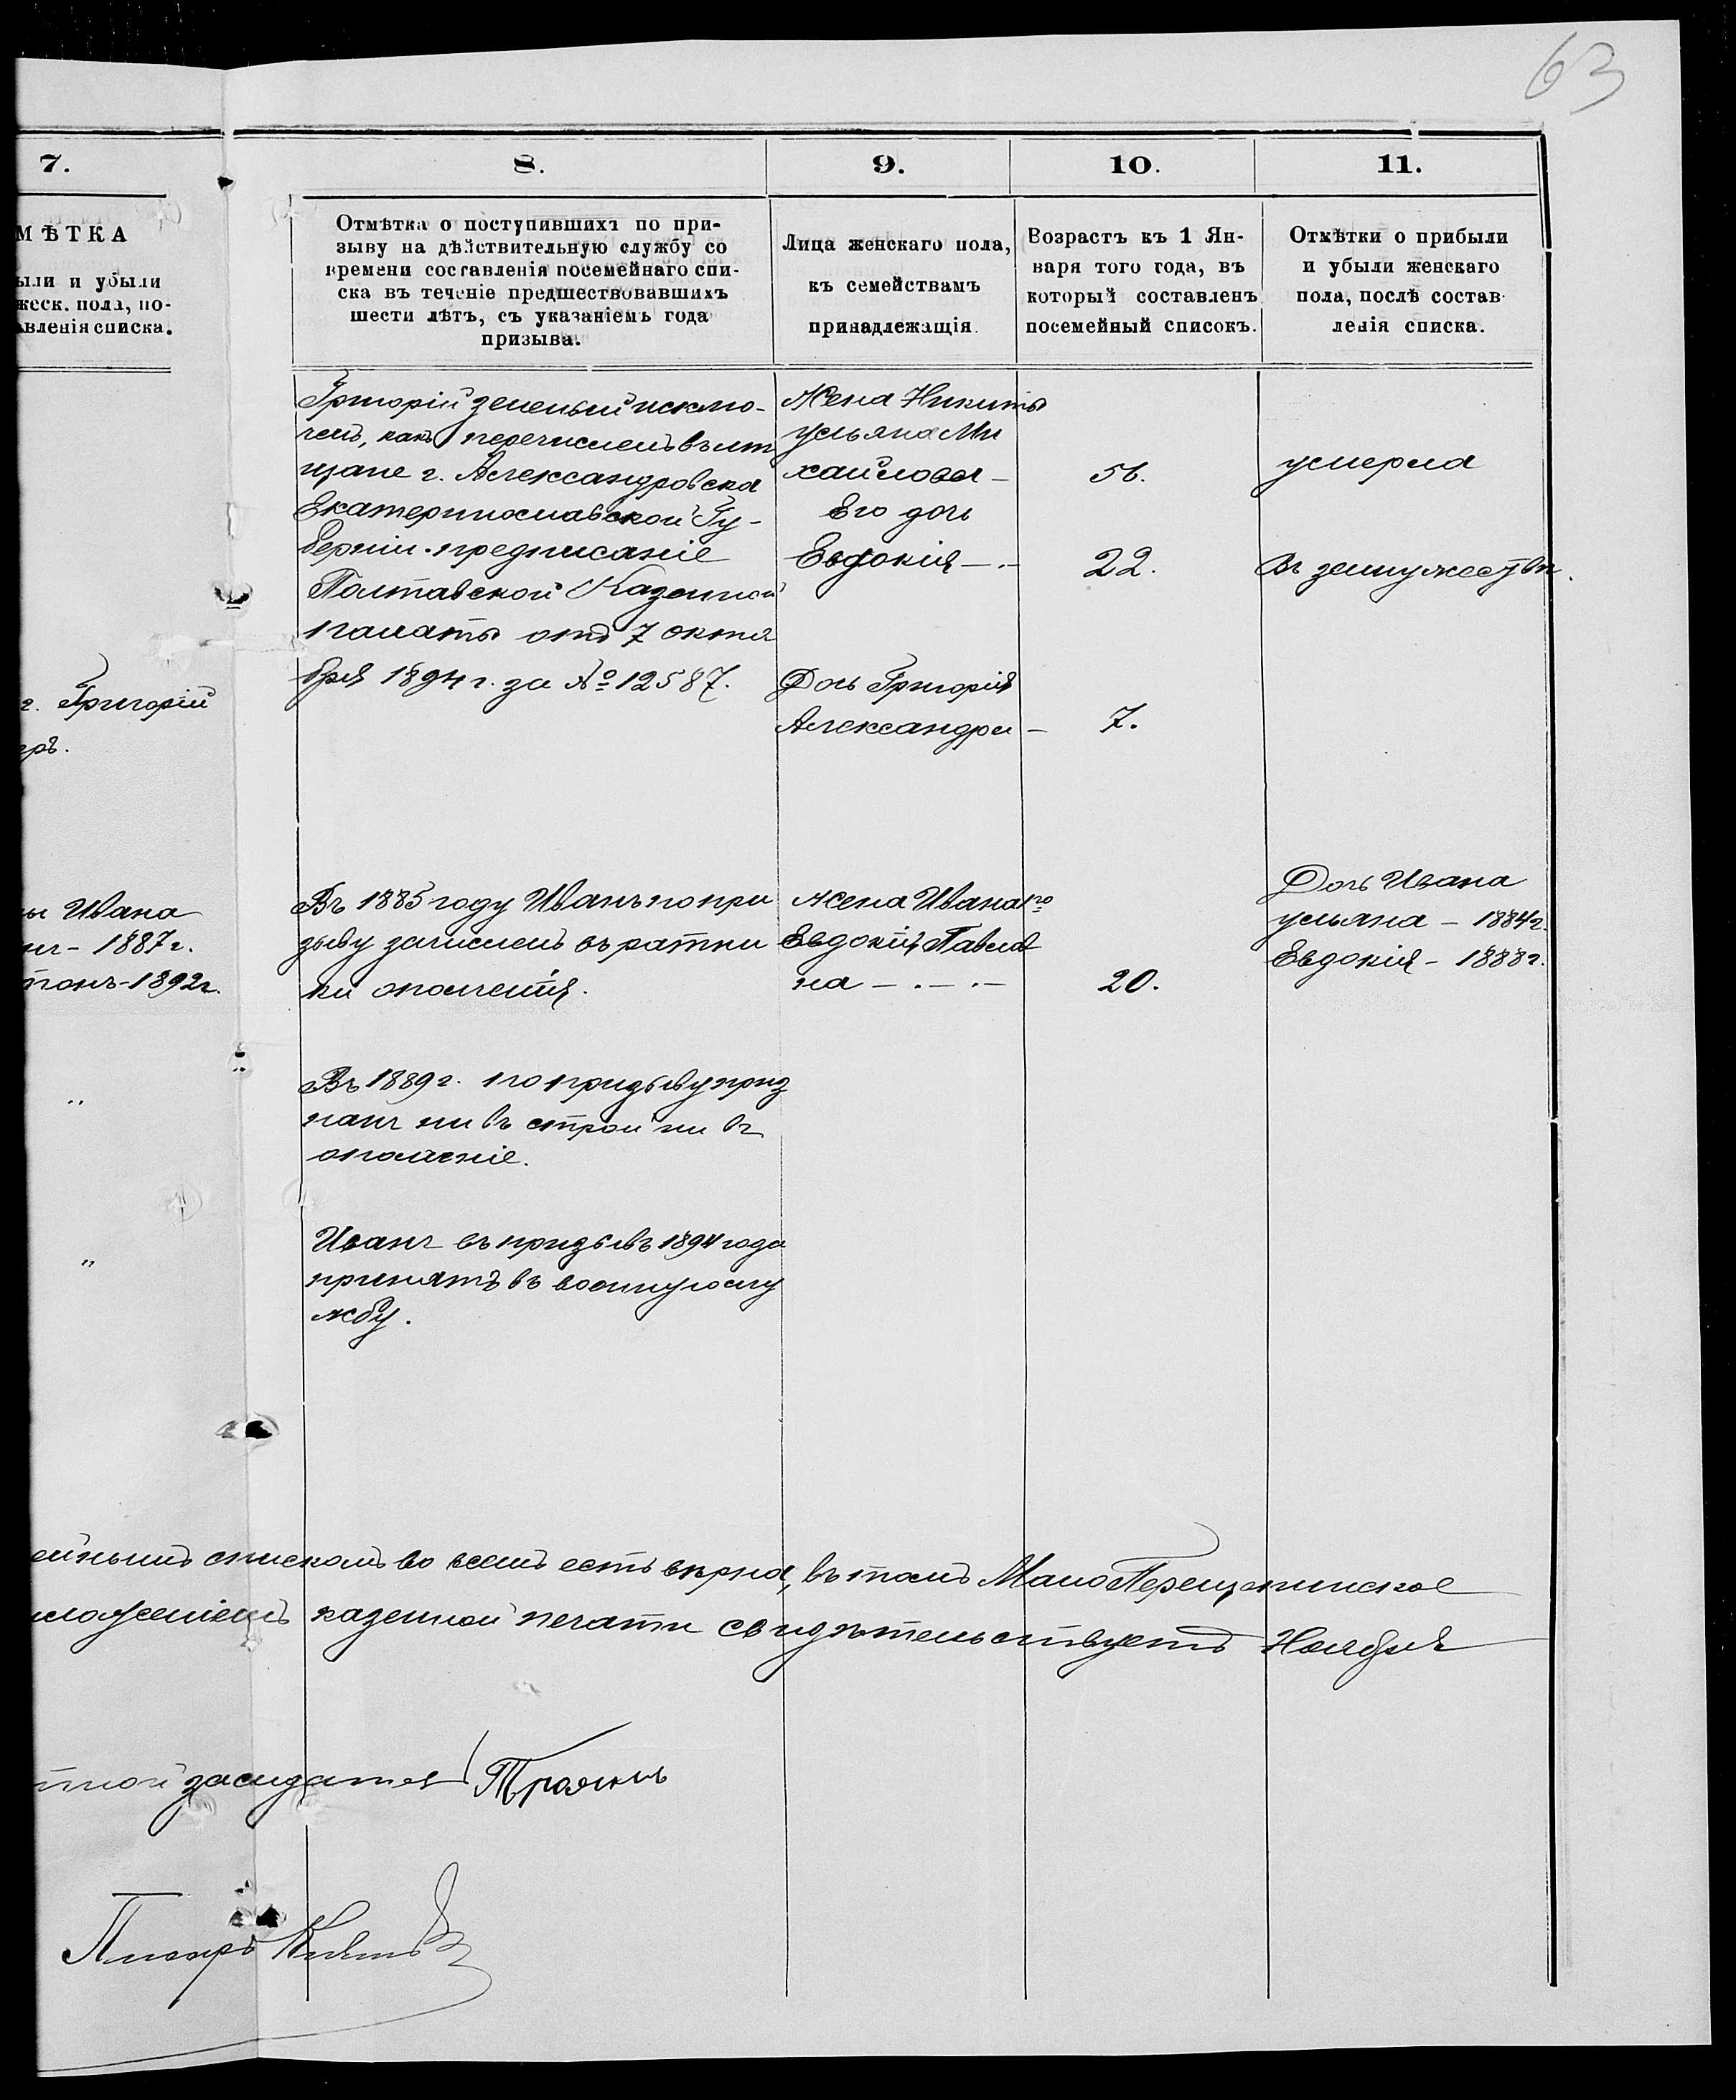 63
7.
8.
9.
10.
11.
МѢТКА
ыли и убыли
жеск. пола, по-
авленія списка.
Отмѣтка о поступившихъ по при-
зыву на дѣйствительную службу со
времени составленія посемейнаго спи-
ска въ теченіе предшествовавшихъ
шести лѣтъ, съ указаніемъ года
призыва.
Лица женскаго пола,
къ семействамъ
принадлежащія.
Возрастъ къ 1 Ян-
варя того года, въ
который составленъ
посемейный списокъ.
Отмѣтки о прибыли
и убыли женскаго
пола, послѣ состав-
ленія списка.
г. Григорій
ръ.
Григорій исклю-
ченъ, какъ перечисленъ въ мѣ
щане г. Александровска
Екатеринославской Гу-
берніи. предписаніе
Полтавской Казенной
палаты отъ 7 октя
бря 1894 г. за № 12587.
Жена Никиты
Ульяна Ми
хайлова - 56. умерла
Его дочь
Евдокія - . - 22. въ замужествѣ.
Дочь Григорія
Александра - 7.
ы Ивана
- 1887 г.
- 1892 г.
Въ 1885 году Иванъ по при
зыву зачисленъ въ ратни
ки ополченія.
Жена Ивана 1го
Евдокія Павлов
на - . - . - 20.
Дочь Ивана
Ульяна - 1884 г.
Евдокія - 1888 г.
Въ 1889 г. по призыву приз
нанъ ни въ строй ни въ
ополченіе.
Иванъ въ призывъ 1894 года
принятъ въ военную слу
жбу.
ейнымъ спискомъ во всемъ есть вѣрна, въ томъ МалоПерещепинское
ложеніемъ казенной печати свидѣтельствуетъ Ноября
засидатель
Писарь